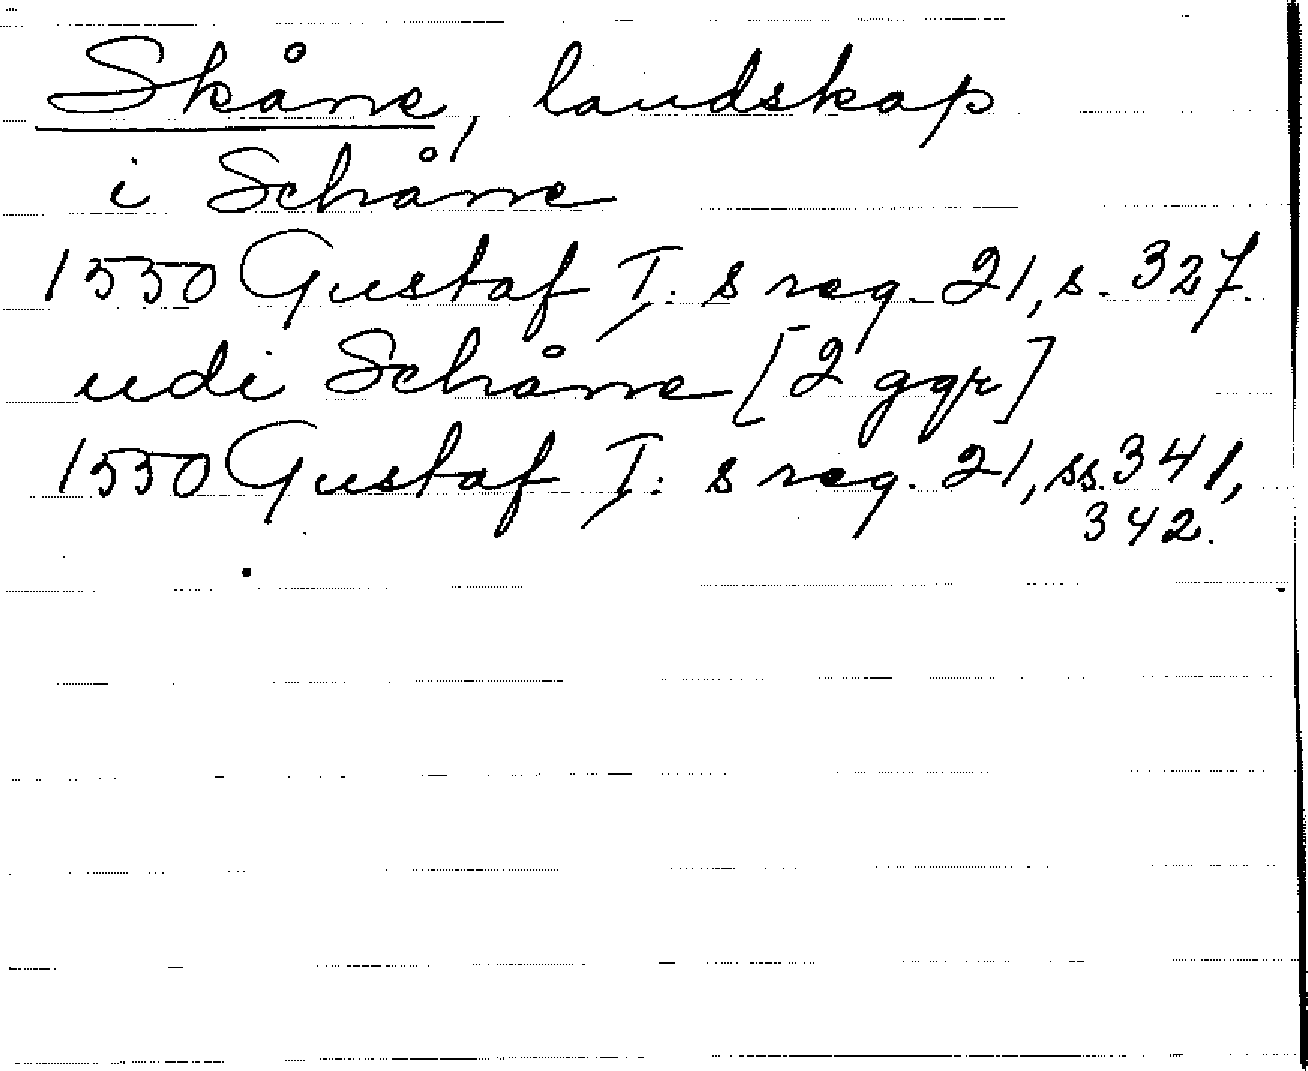 Skåne, landskap
i Schåne
1550 Gustaf I: s reg. 21, s. 327.
udi Schåne [2 ggr]
1550 Gustaf I: s reg. 21, ss. 341,
342.